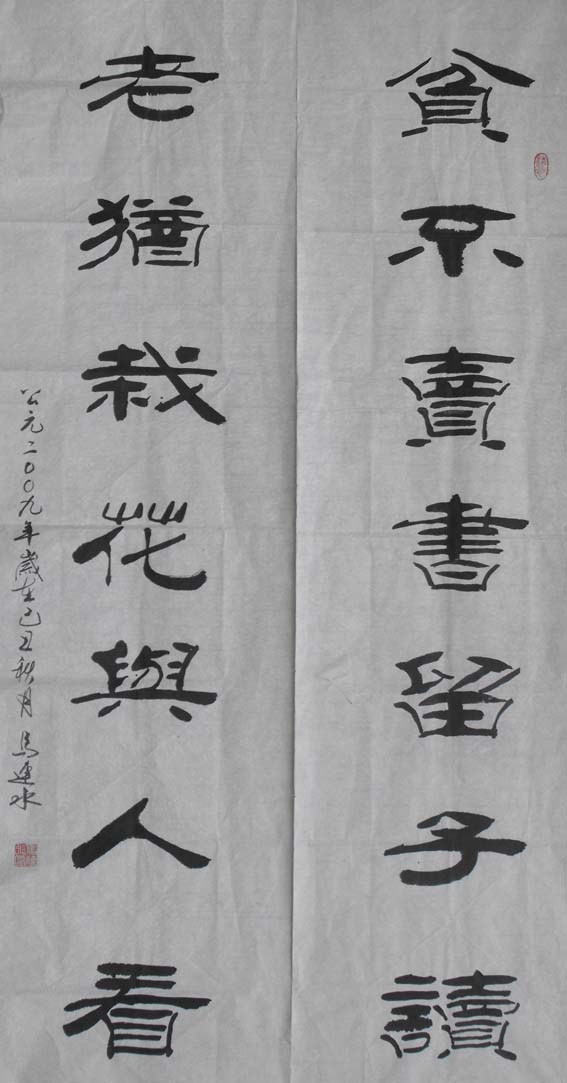 貧不賣書留子讀
老猶栽花與人看
公元二〇〇九年歲在己丑秋月馬建水